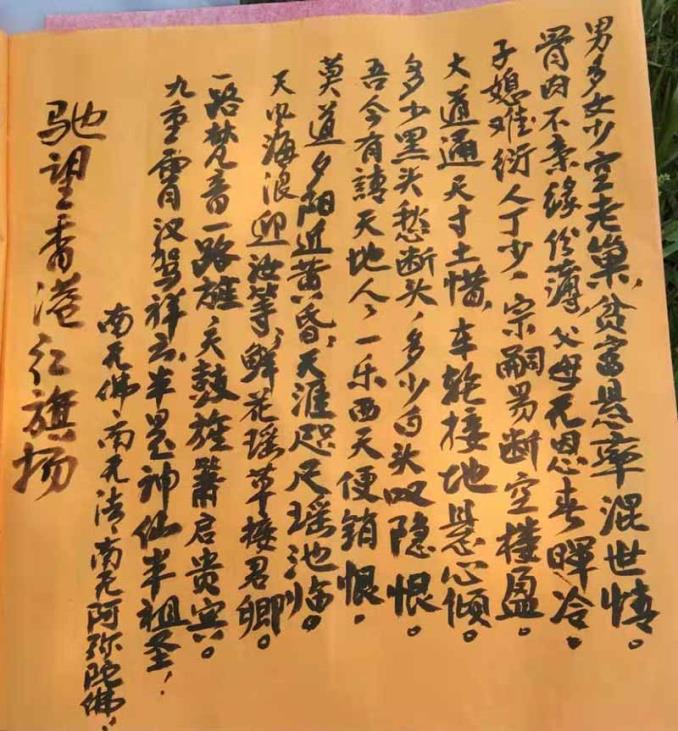 男多女少空老巢，贫富悬率混世情。
骨肉不亲缘份薄，父母无恩春晖冷。
子媳难衍人丁少，宗嗣男断空楼盈。
大道通天寸土惜，车轮接地悬心倾。
多少黑头愁断头，多少白头叹隐恨。
吾今有诗天地人，一乐西天便销恨。
莫道夕阳近黄昏，天涯咫尺瑶池临。
天风海浪迎汝等，鲜花瑶草接君卿。
一路梵音一路旌，天鼓旌箫启贵宾。
九重霄汉驾祥云，半是神仙半祖圣！
南无佛，南无法，南无阿弥陀佛！
驰望香港红旗扬